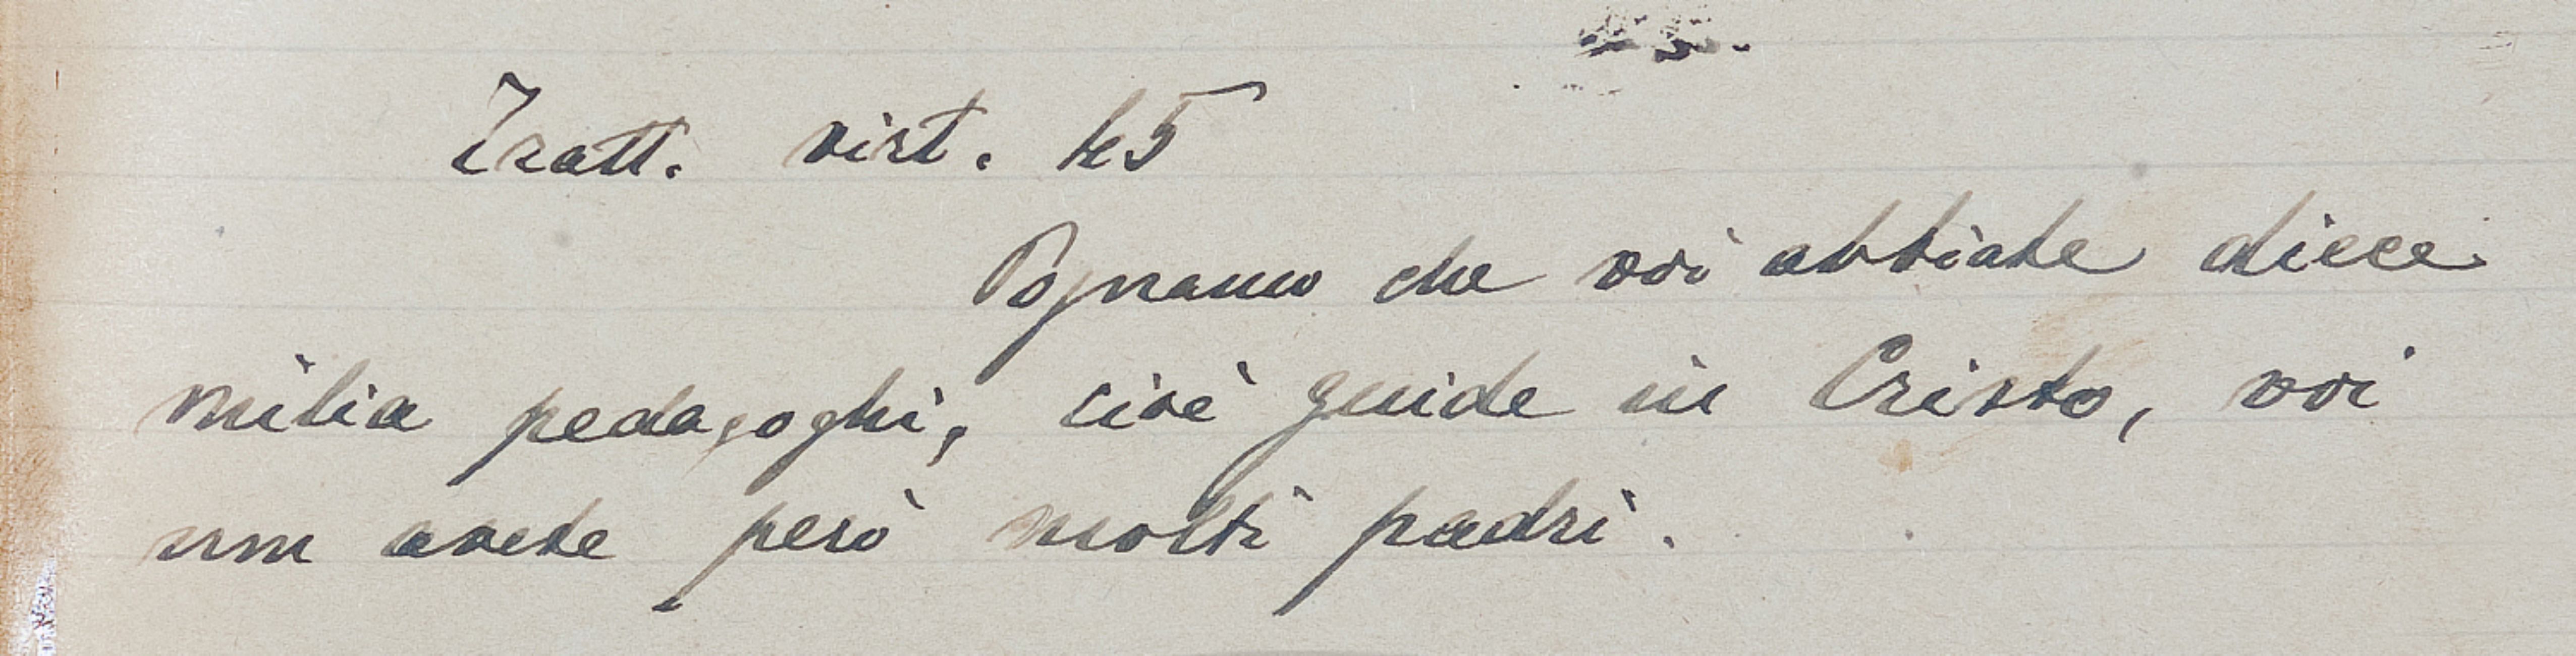 Tratt. virt. 45
Pognamo che voi abbiate diece
milia pedagoghi, cioè guide in Cristo, voi
non avete però molti padri.